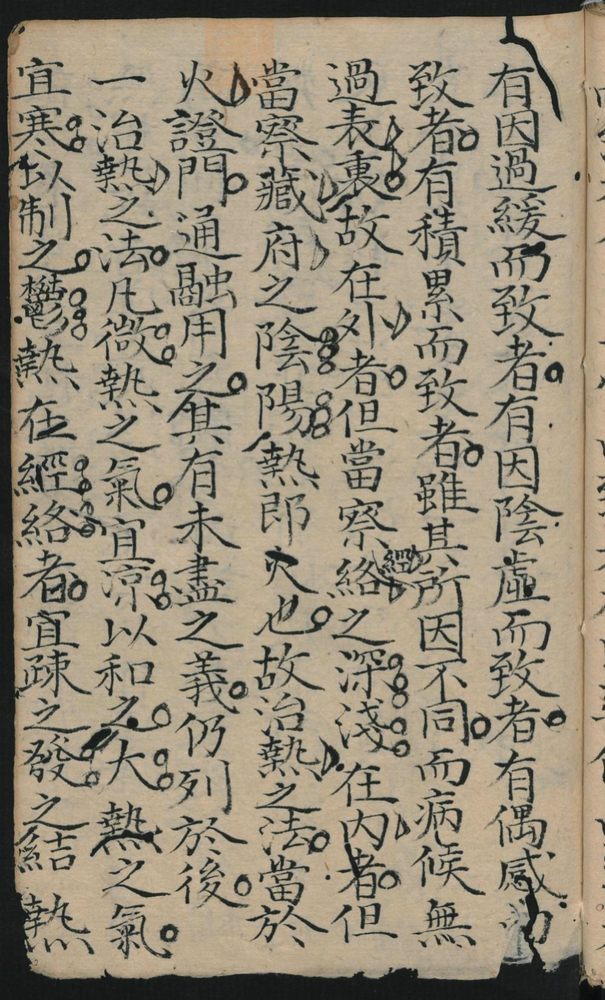 有因過緩而致者有因陰虛而致者有偶感而
致者有積累而致者雖其所因不同而病候無
過表裏故在外者但當察經絡之深淺在内者但
當察藏府之陰陽熱即火也故治熱之法當於
火證門通融用之其有未盡之義仍列於後
一治熱之法凡微熱之氣宜凉以和之大熱之氣
宜寒以制之鬱熱在經絡者宜疎之發之結熱